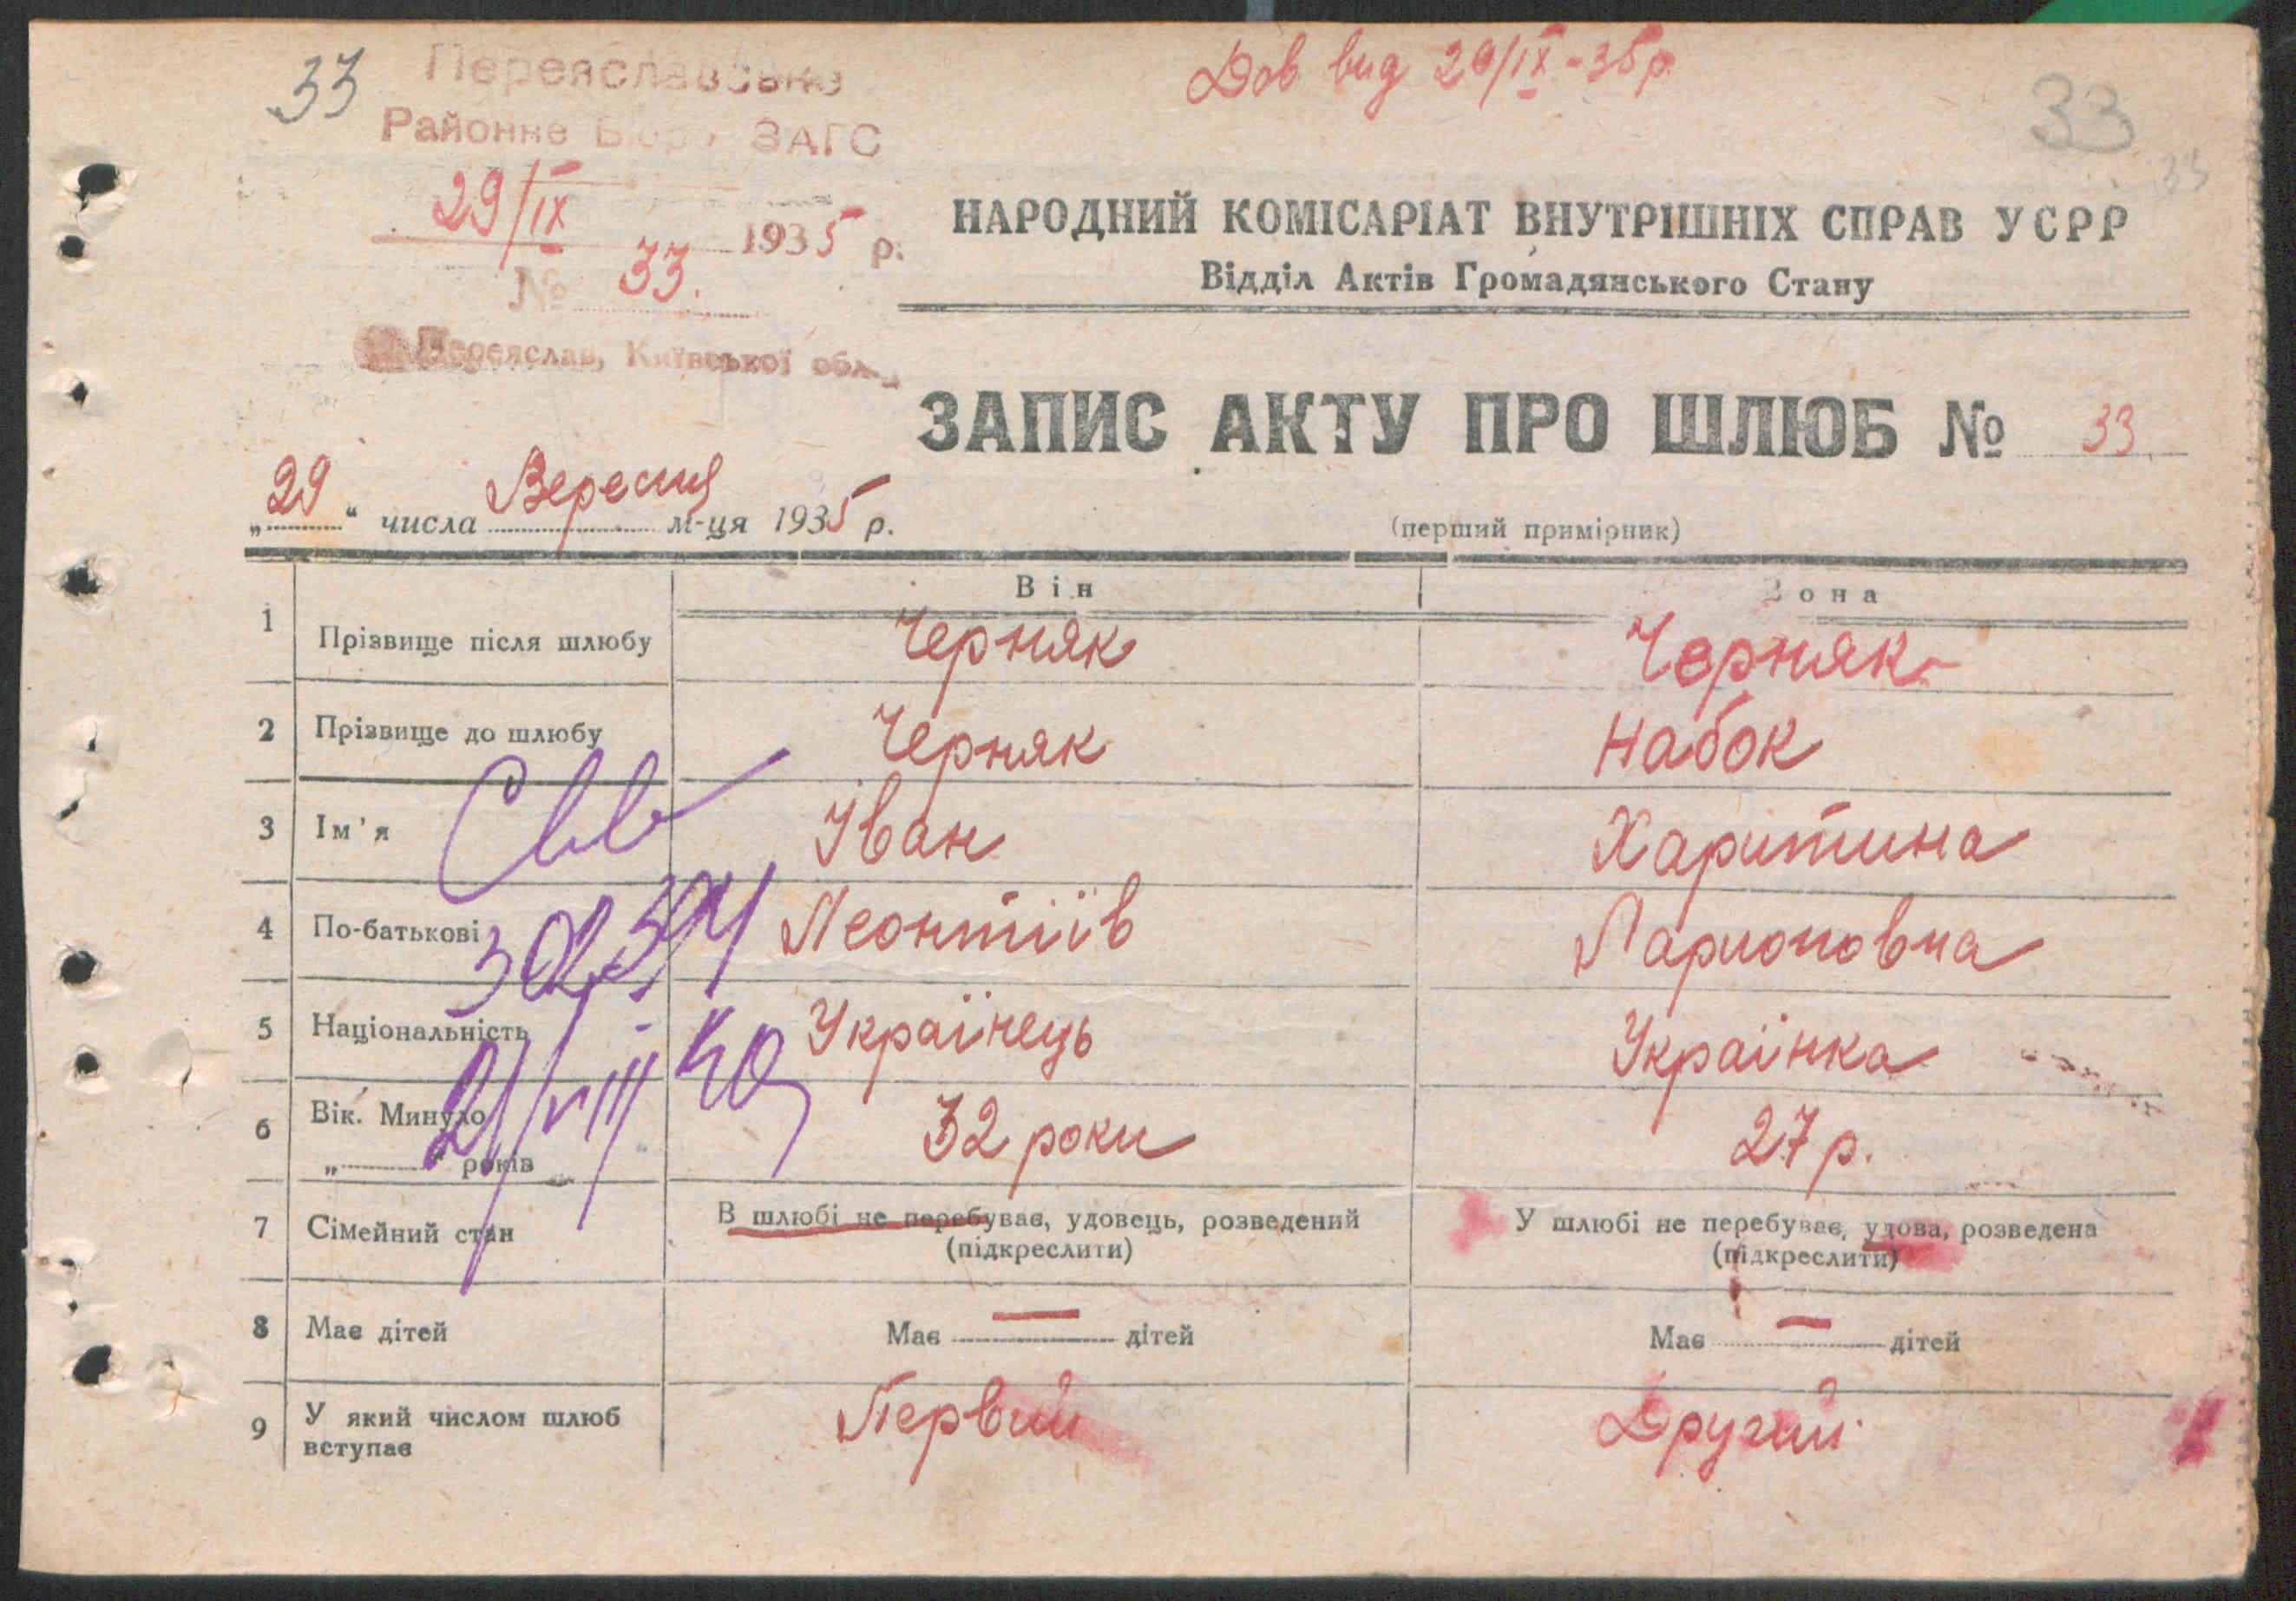 33
Переяславське
Районне Бюро ЗАГС
29/IX 1935 р.
№ 33.
Переяслав, Київської обл.
Дов вид 29/IX-35р.
33
33
НАРОДНИЙ КОМІСАРІАТ ВНУТРІШНІХ СПРАВ УСРР
Відділ Актів Громадянського Стану
ЗАПИС АКТУ ПРО ШЛЮБ № 33.
„29“ числа Вересня м-ця 1935 р.
(перший примірник)
Він Вона
1 Прізвище після шлюбу Черняк Черняк
2 Прізвище до шлюбу Черняк Набок
3 Ім'я Іван Харитина
4 По-батькові Леонтіїв Ларионовна
5 Національність Українець Українка
6 Вік. Минуло
„ “ років 32 роки 27 р.
7 Сімейний стан В шлюбі не перебував, удовець, розведений У шлюбі не перебуває, удова, розведена
(підкреслити) (підкреслити)
8 Має дітей Має — дітей Має — дітей
9 У який числом шлюб
вступає Первий Другий
21/VIII 40